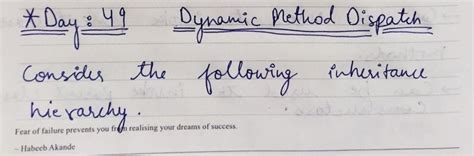 * Day : 49 Dynamic Method Dispatch
Consider the following inheritance
hierarchy.
Fear of failure prevents you from realising your dreams of success.
~ Habeeb Akande